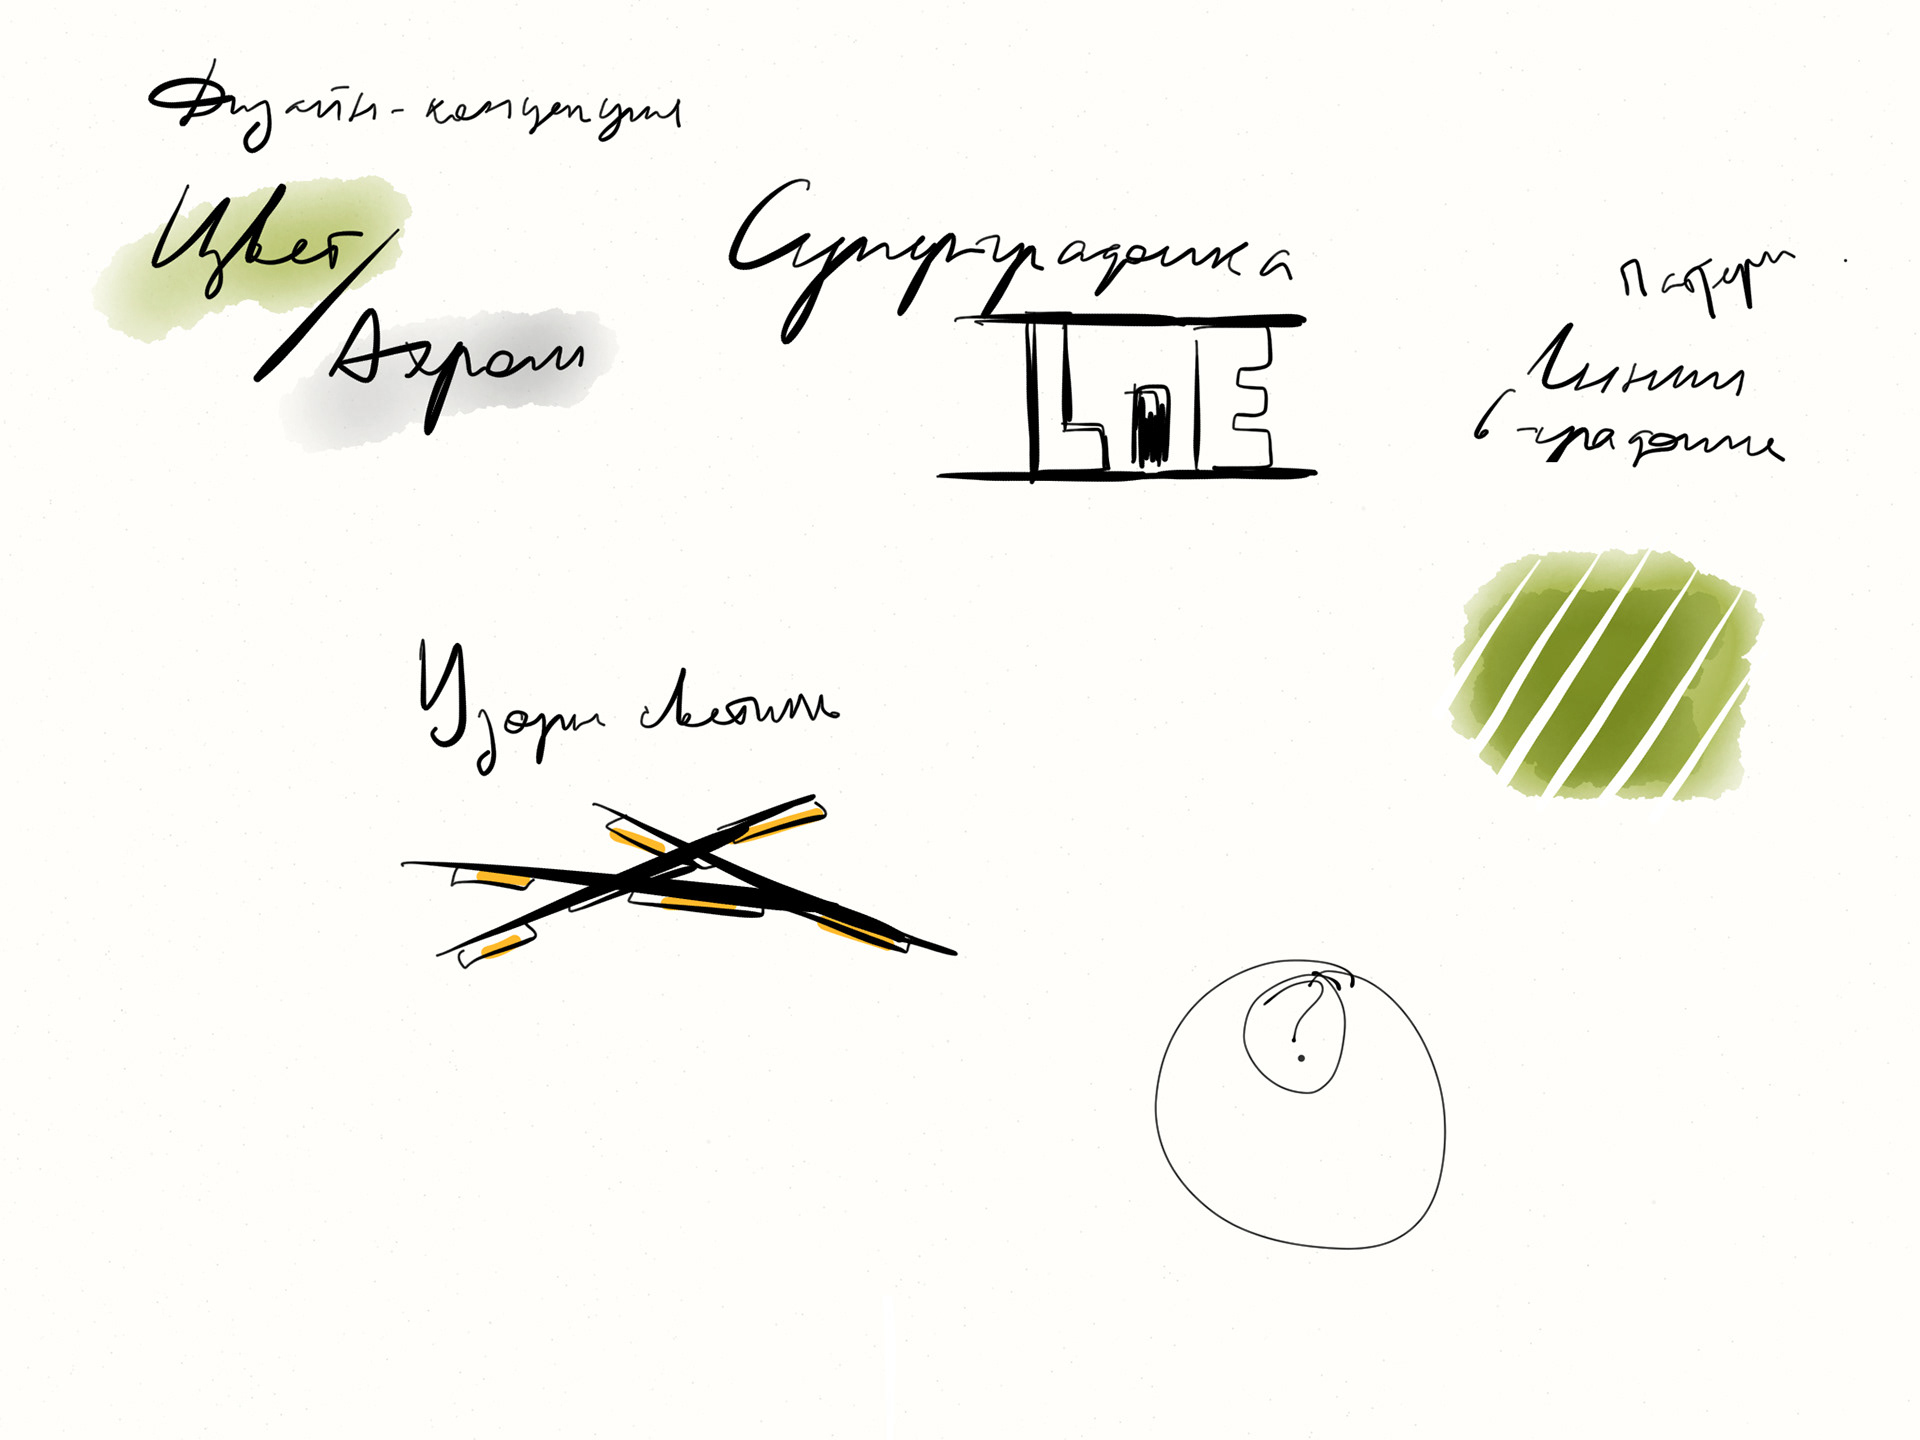 Дизайн-концепция
Цвет/
Ахром
Суперграфика
Паттерн
Линии
в графике
Узоры светом